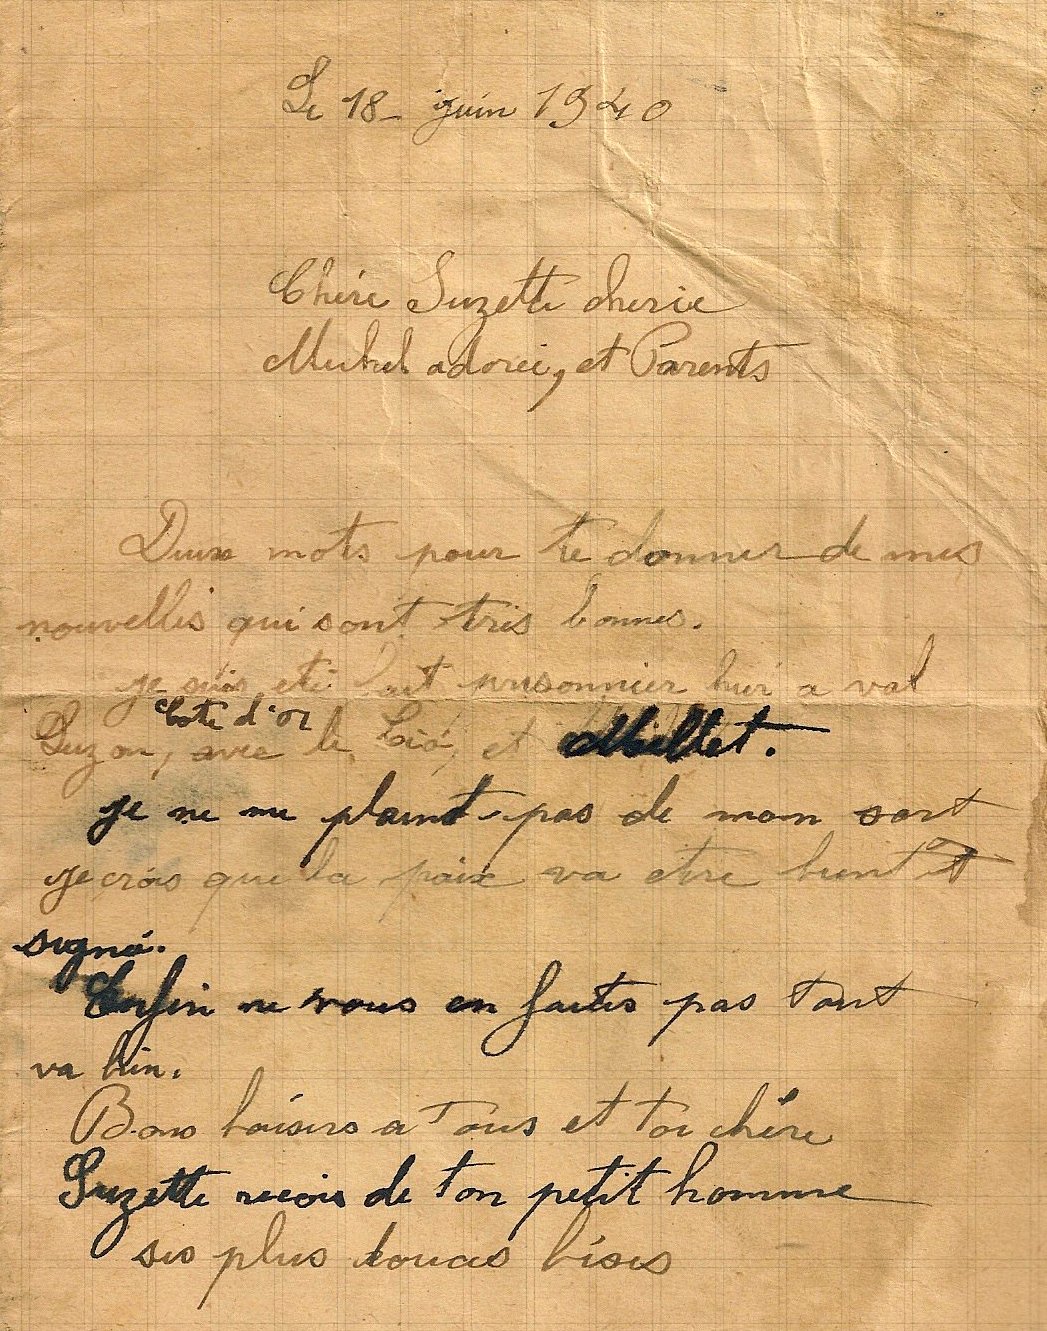 Le 18 - juin 1940
Chére Suzette cherie
Michel adorée, et Parents
Deux mots pour te donner de mes
nouvelles qui sont très bonnes.
je suis eté fait prisonnier hier a val
Cote d'or
Suzon, avec le et Millet.
je ne me plaint pas de mon sort
je crois que la paix va etre bientôt
signé.
Enfin ne vous en faites pas tout
va bien.
Bons baisers a Tous et toi chére
Suzette recois de ton petit homme
ses plus douces bises